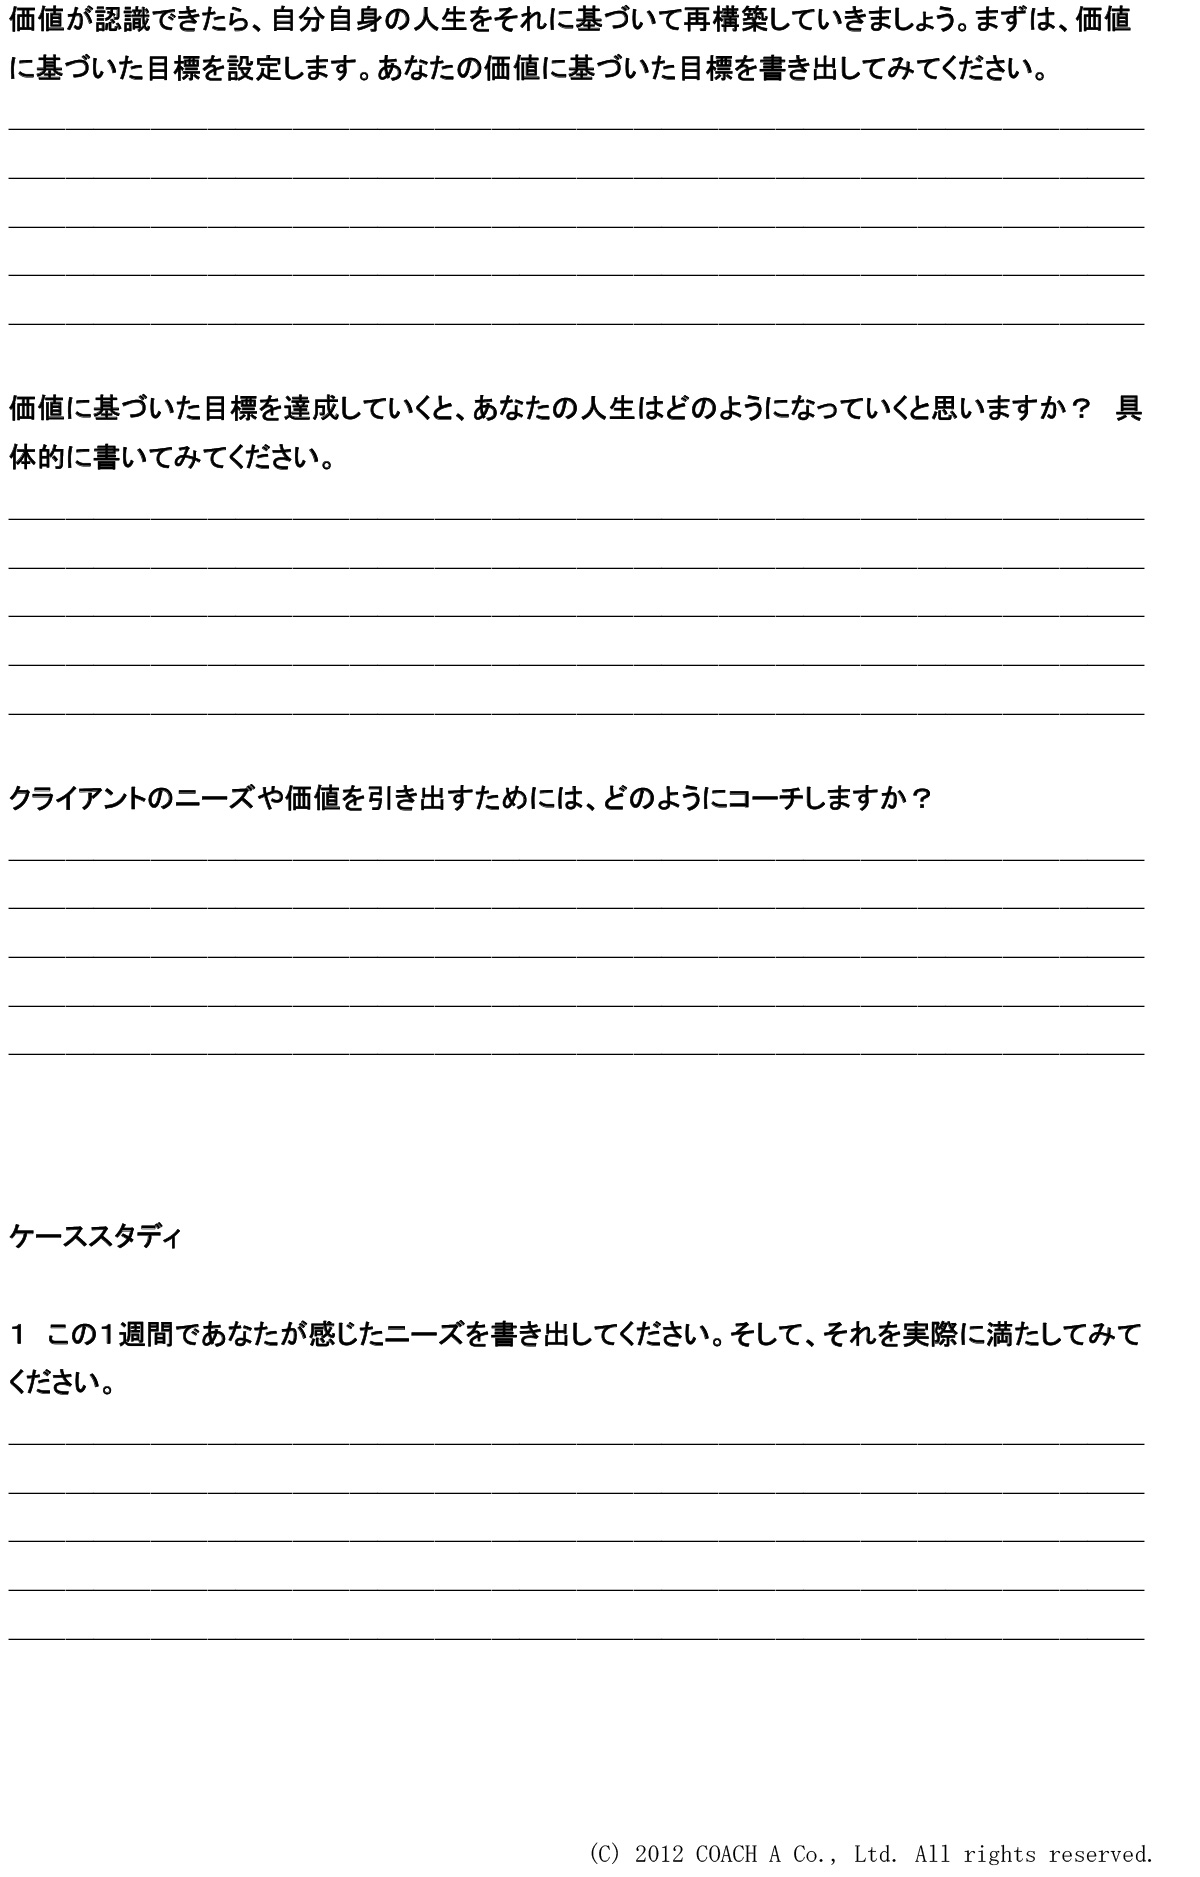 価値が認識できたら、自分自身の人生をそれに基づいて再構築していきましょう。まずは、価値
に基づいた目標を設定します。あなたの価値に基づいた目標を書き出してみてください。
価値に基づいた目標を達成していくと、あなたの人生はどのようになっていくと思いますか？　具
体的に書いてみてください。
クライアントのニーズや価値を引き出すためには、どのようにコーチしますか？
ケーススタディ
１　この１週間であなたが感じたニーズを書き出してください。そして、それを実際に満たしてみて
ください。
(C) 2012 COACH A Co., Ltd. All rights reserved.